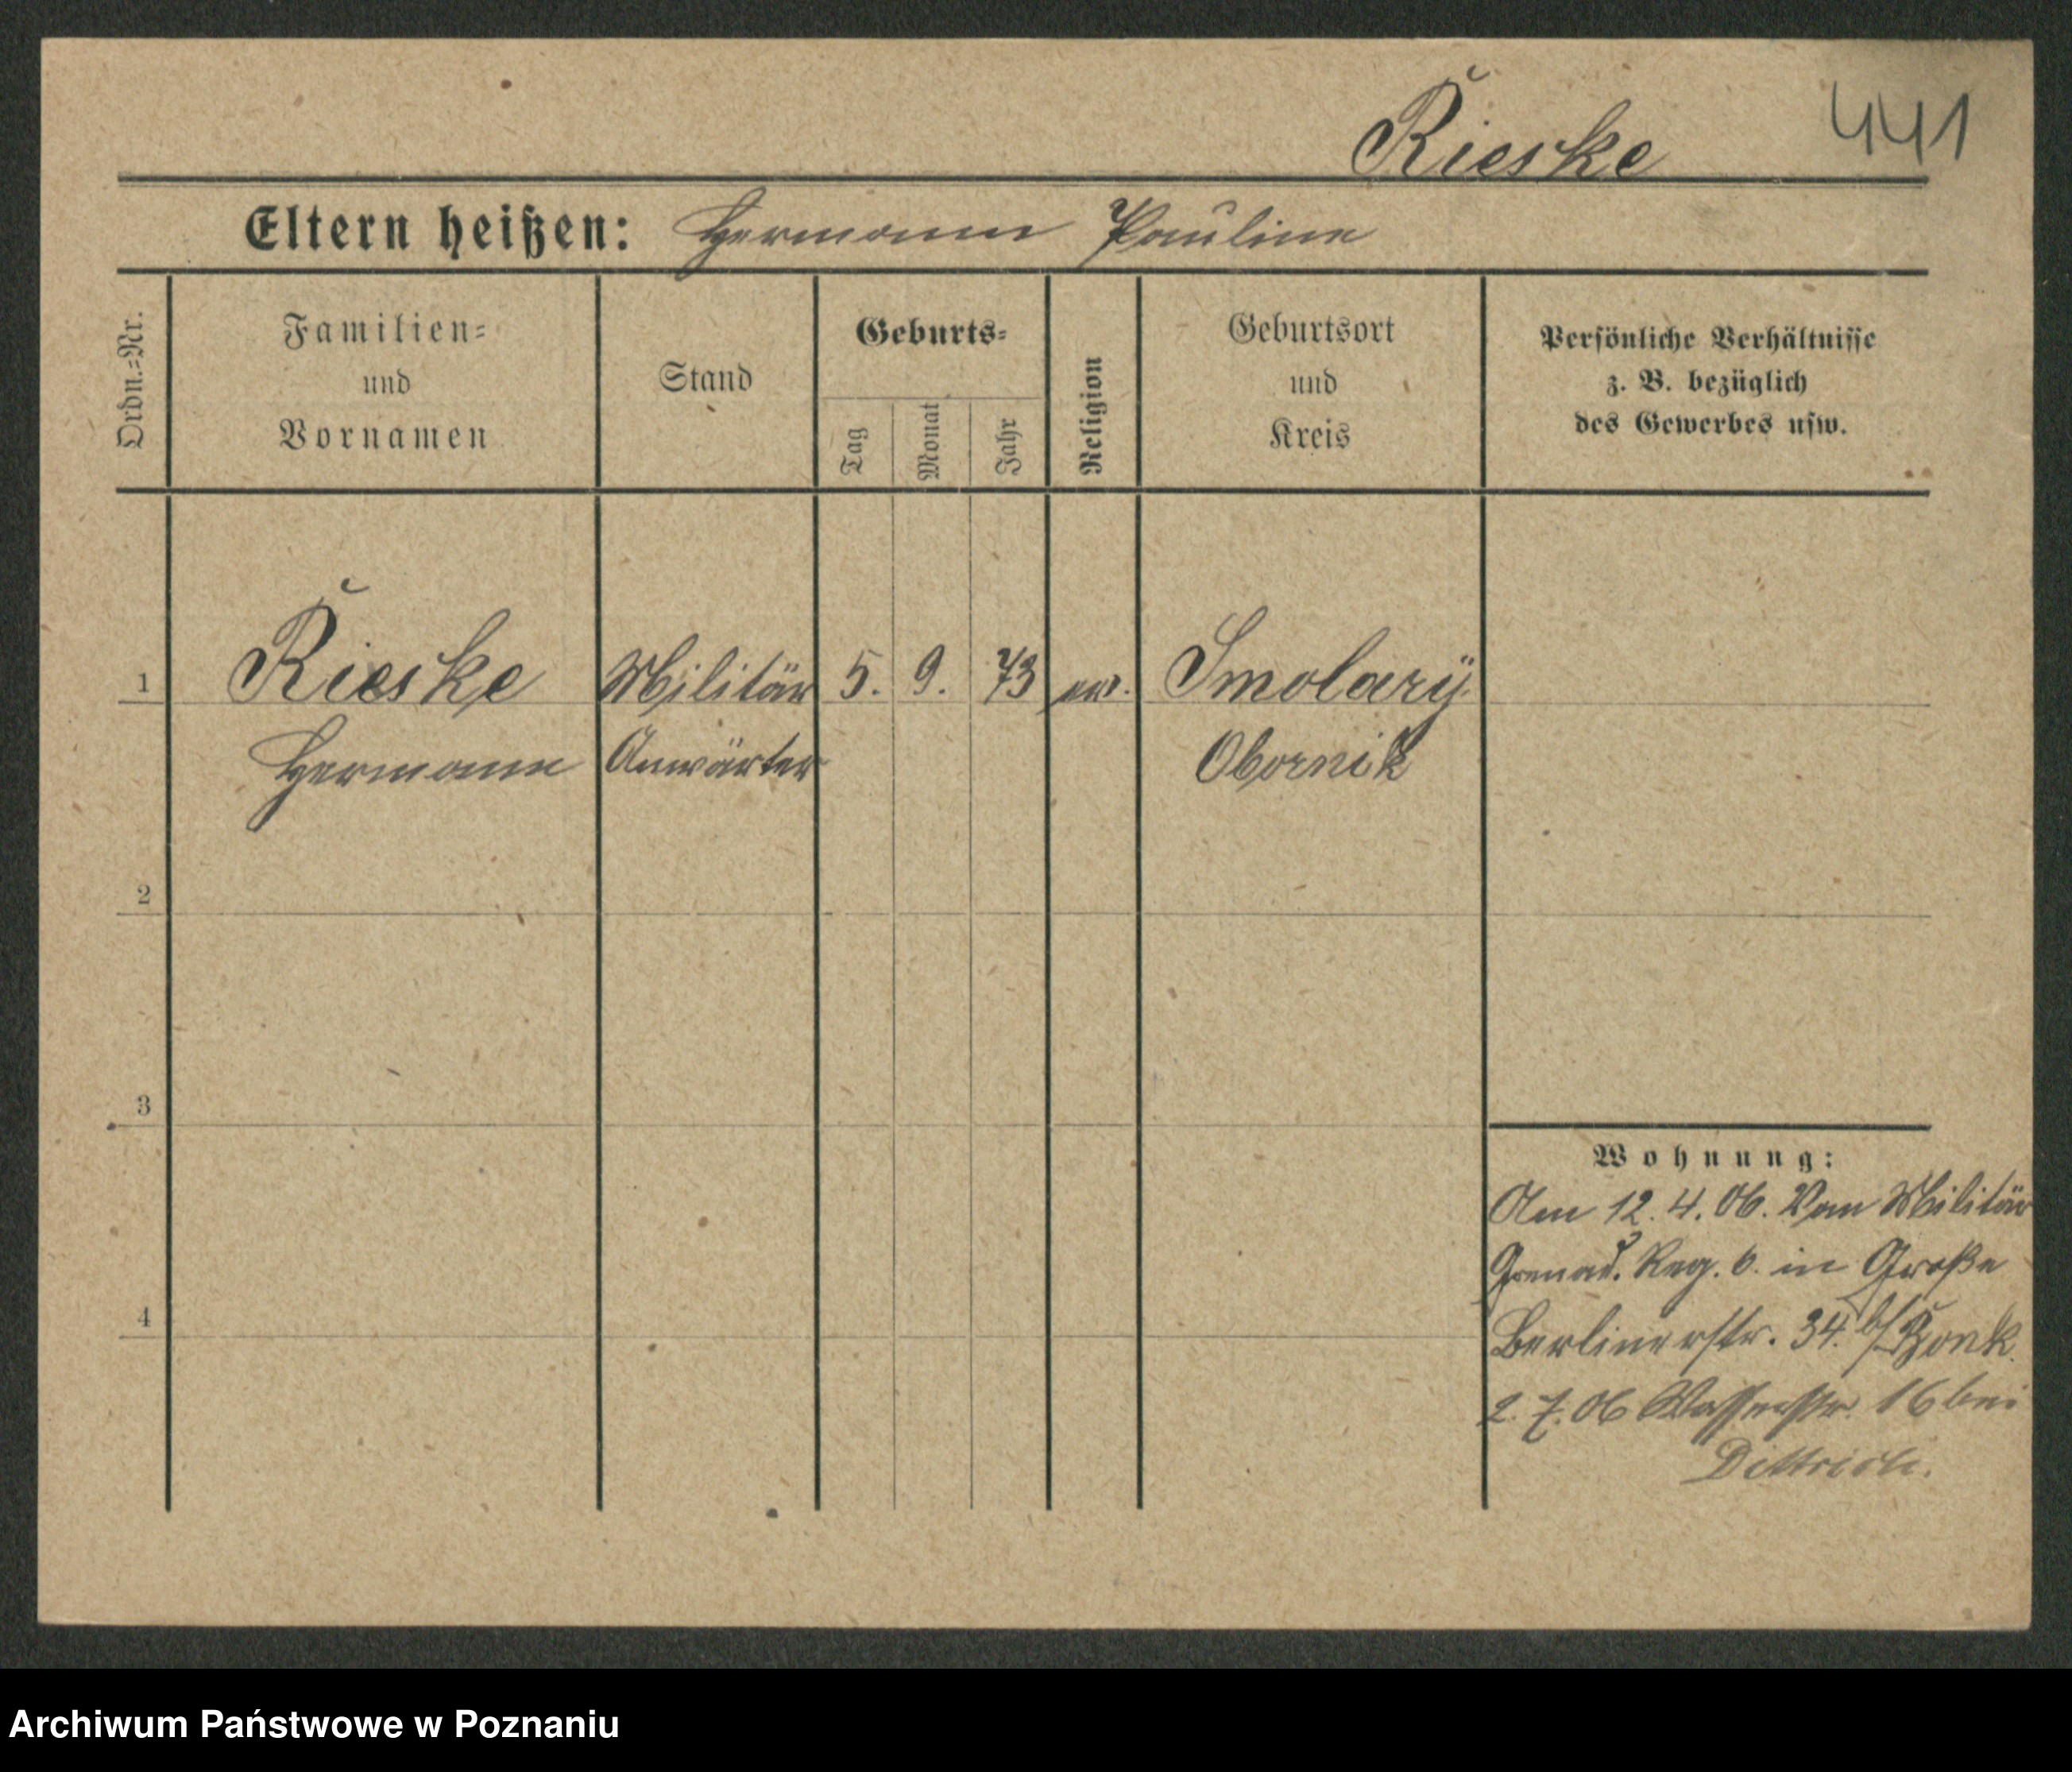 Rieske 441
Eltern heißen: Hermann Pauline
Ordn.-Nr.
Familien-
und
Vornamen
Stand
Geburts-
Tag
Monat
Jahr
Religion
Geburtsort
und
Kreis
Persönliche Verhältnisse
z. B. bezüglich
des Gewerbes usw.
1 Rieske Militär 5. 9. 73 ev. Smolary
Hermann Anwärter Obornik
2
3
4
Wohnung:
Am 12. 4. 06. Vom Militär
Grenad. Reg. 6. in Große
Berlinerstr. 34. b/
2. 7. 06 Wasserstr. 16 bei
Dittrich.
Archiwum Państwowe w Poznaniu